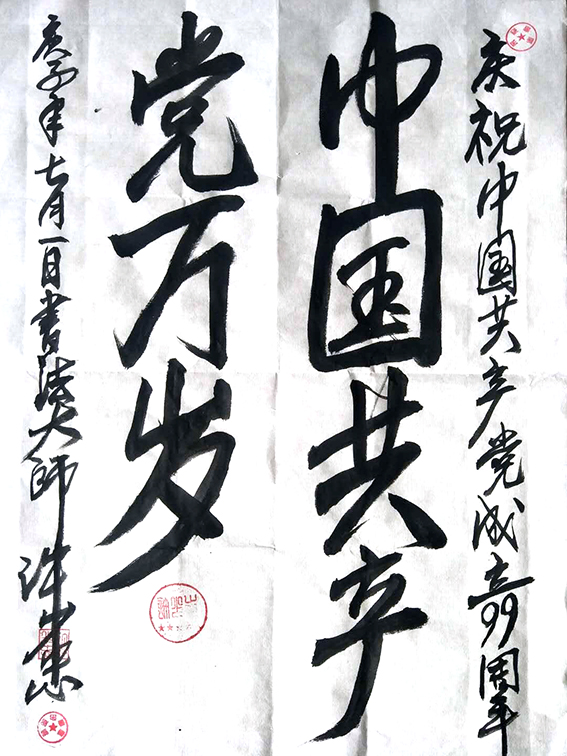 庆祝中国共产党成立99周年
中国共产
党万岁
庚子年七月一日書法大師许